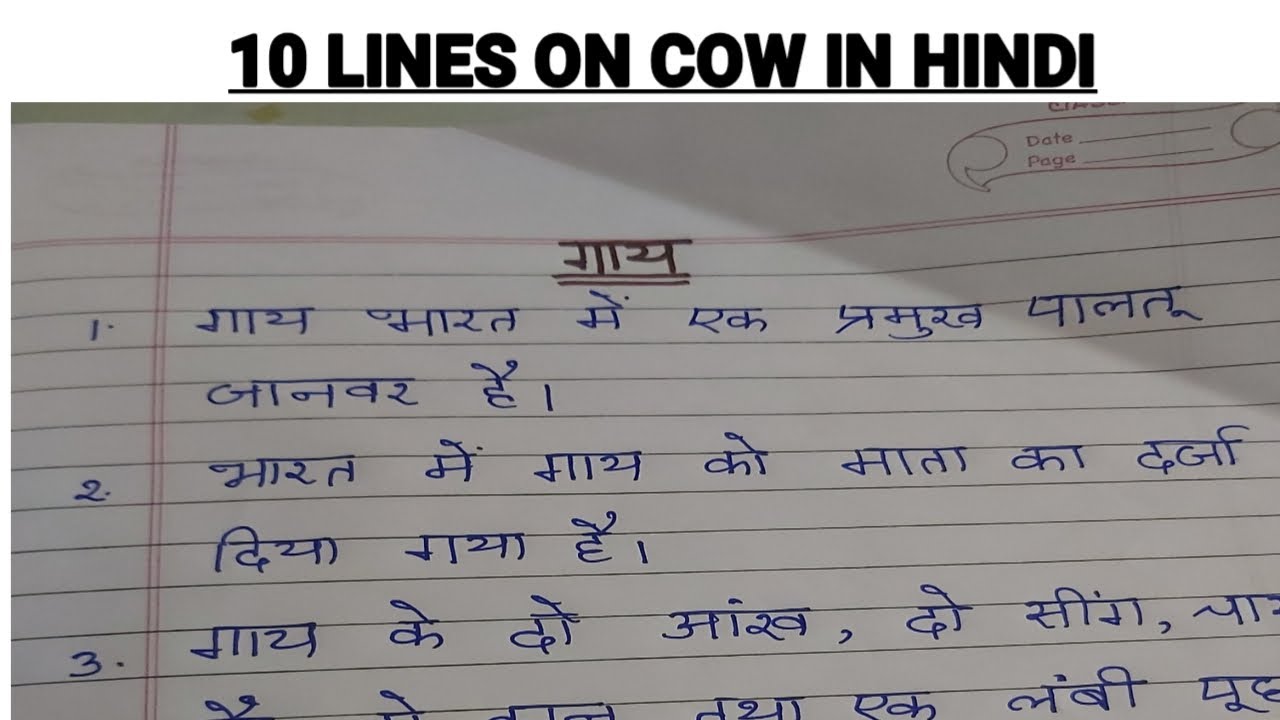 10 LINES ON COW IN HINDI
Date
Page
गाय
1. गाय भारत में एक प्रमुख पालतू
जानवर है।
2. भारत में गाय को माता का दर्जा
दिया गया है।
3. गाय के दो आंख, दो सींग,
तथा एक लंबी